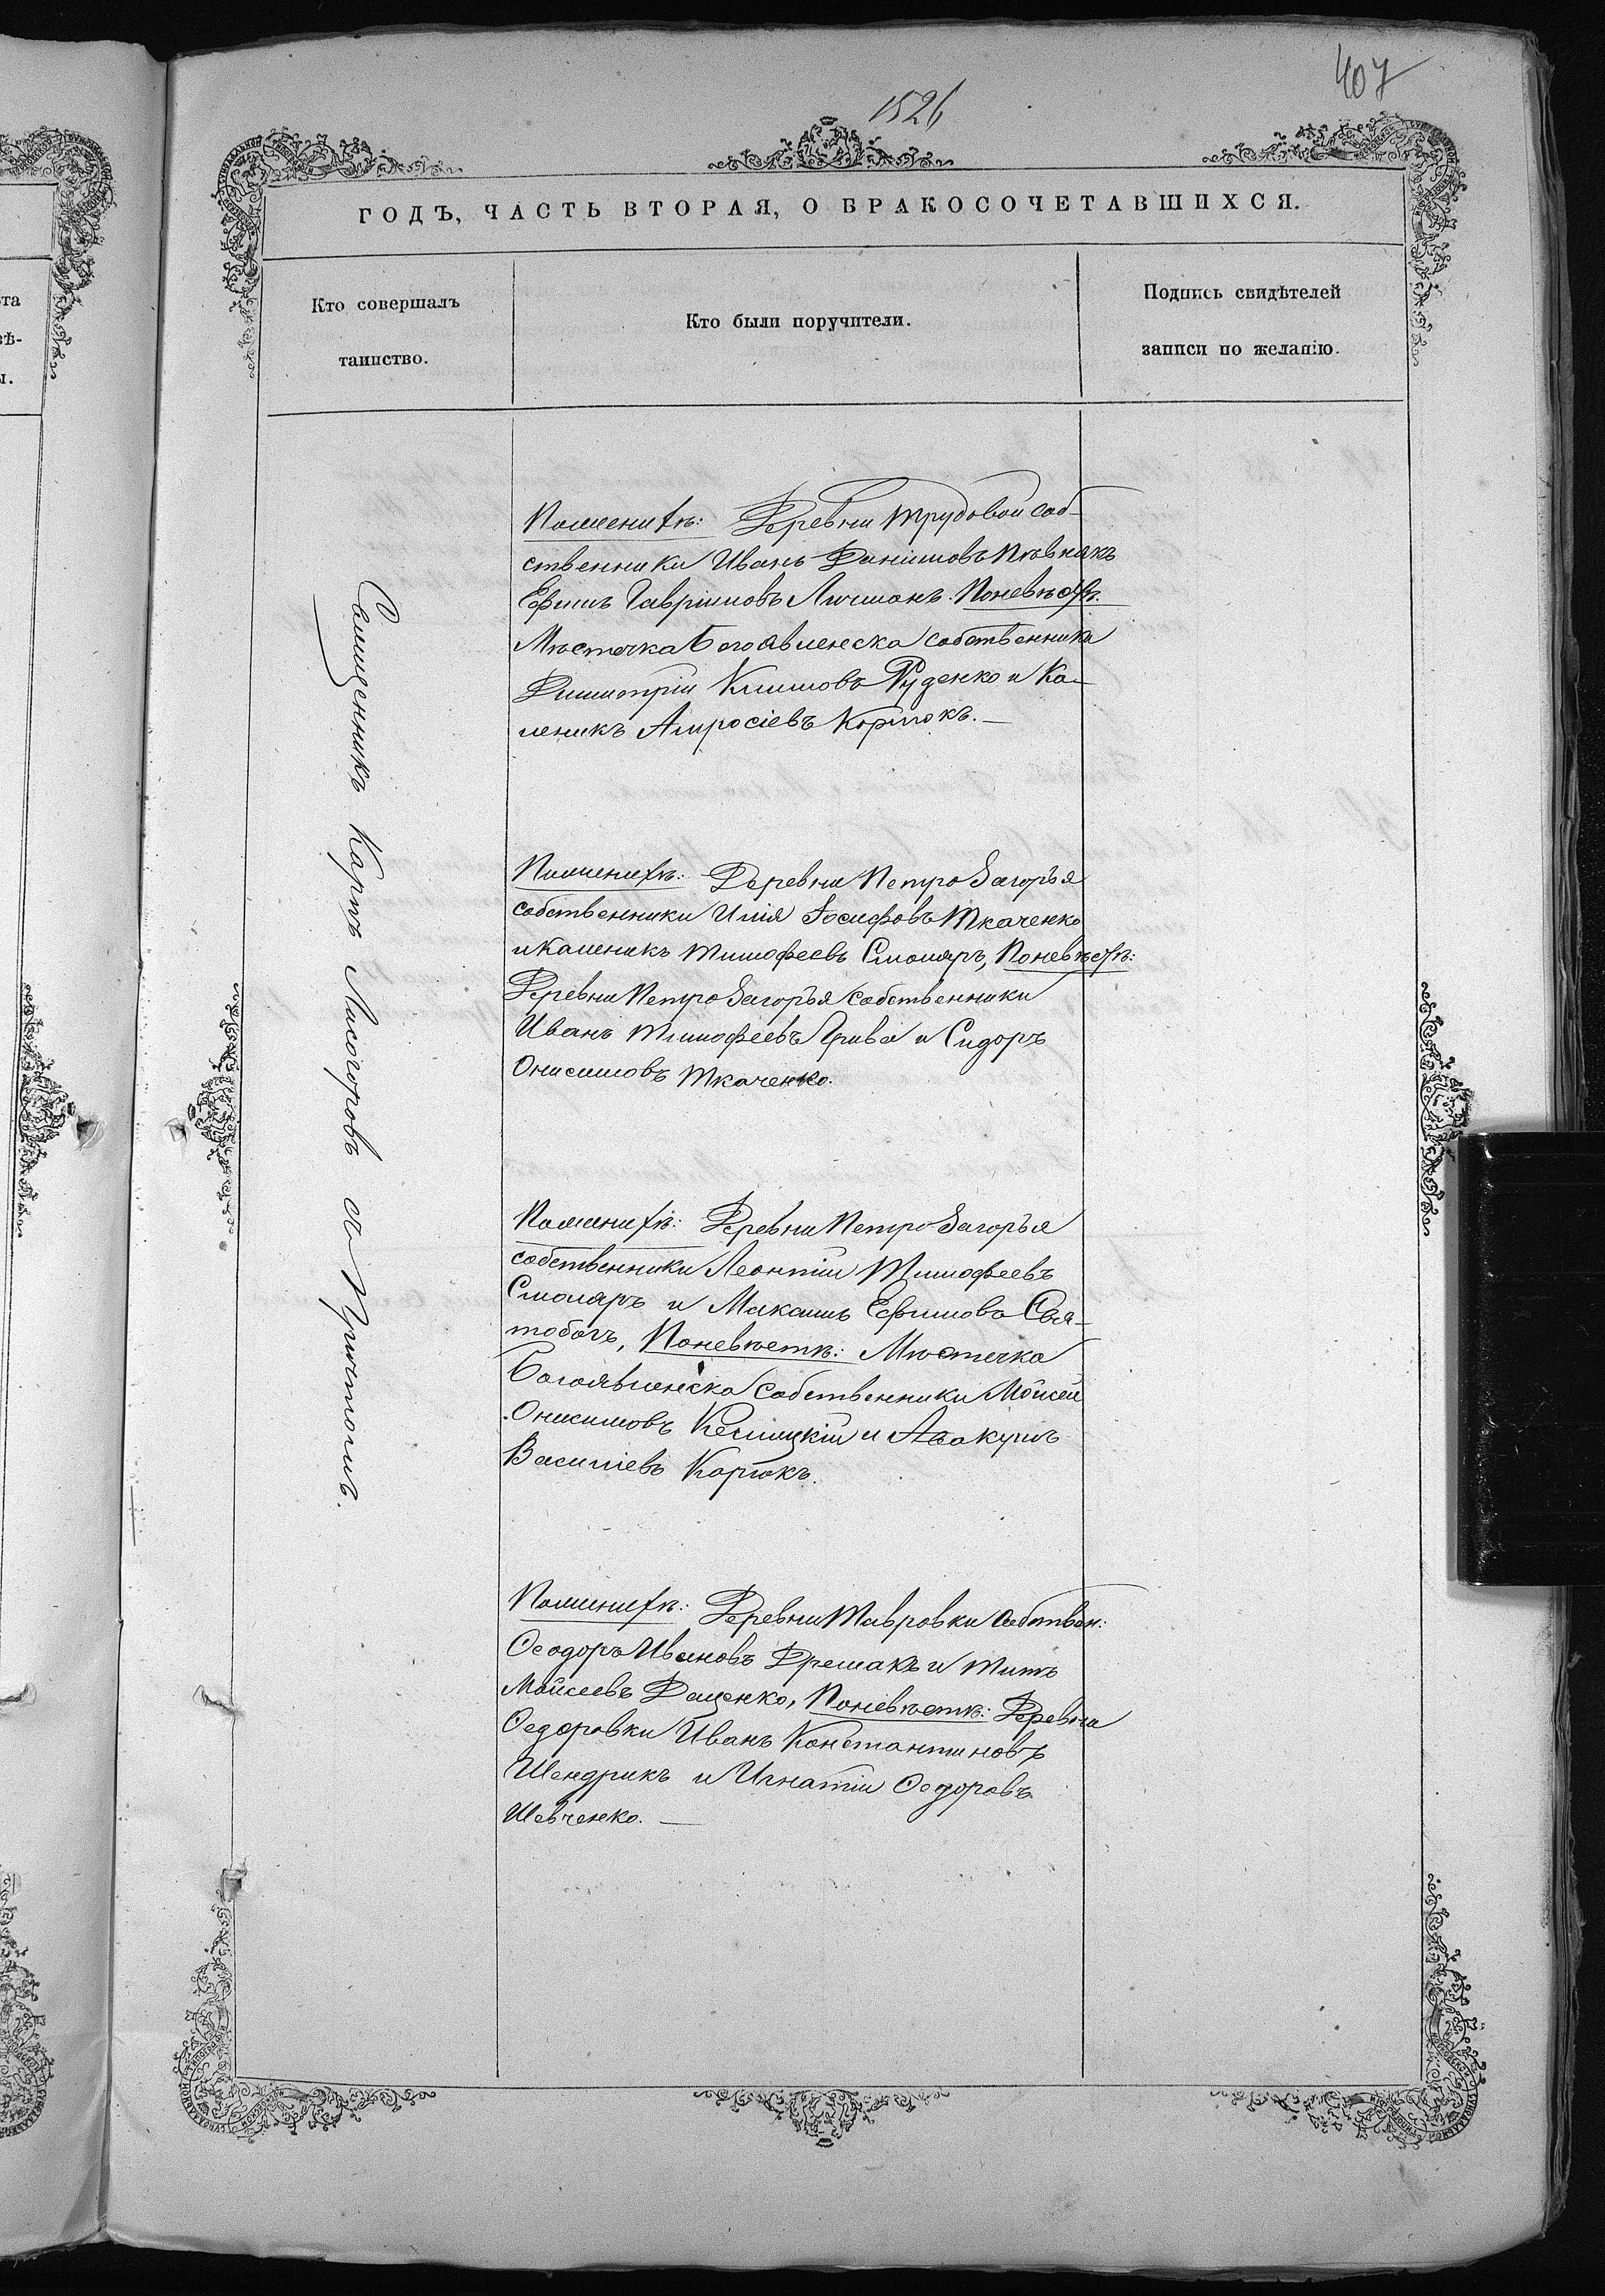 407
1526
ГОДЪ, ЧАСТЬ ВТОРАЯ, О БРАКОСОЧЕТАВШИХСЯ.
Кто совершалъ
таинство.
Кто были поручители.
Подпись свидѣтелей
записи по желанію.
Священникъ Карпъ Лисогоровъ съ Причтомъ.
По женихѣ: Деревни Трудовой соб-
ственники Иванъ Даниловъ Пѣвнякъ
Ефимъ Гавріиловъ Личманъ. По невѣстѣ.
Мѣстечка Богоявленска собственники
Димитрій Климовъ Руденко и Ка-
леникъ Амросіевъ Корнюкъ.
По женихѣ: Деревни Петро Загорья
собственники Илія Іосифовъ Ткаченко
и Каленикъ Тимофеевъ Смоляръ, По невѣстѣ:
Деревни Петро Загорья собственники
Иванъ Тимофеевъ Грива и Сидоръ
Онисимовъ Ткаченко.
По женихѣ: Деревни Петро Загорья
собственники Леонтій Тимофеевъ
Смоляръ и Макаимъ Ефимовъ Свя-
тобогъ, По невѣстѣ: Мѣстечка
Богоявленска собственники Мойсей
Онисимовъ и Авакумъ
Василіевъ Корнюкъ.
По женихѣ: Деревни Тавровки собствен:
Ѳеодоръ Ивановъ Дремакъ и Титъ
Мойсеевъ Даценко, По невѣстѣ: Деревни
Ѳедоровки Иванъ Константиновъ
Шендрикъ и Игнатій Ѳедоровъ
Шевченко.